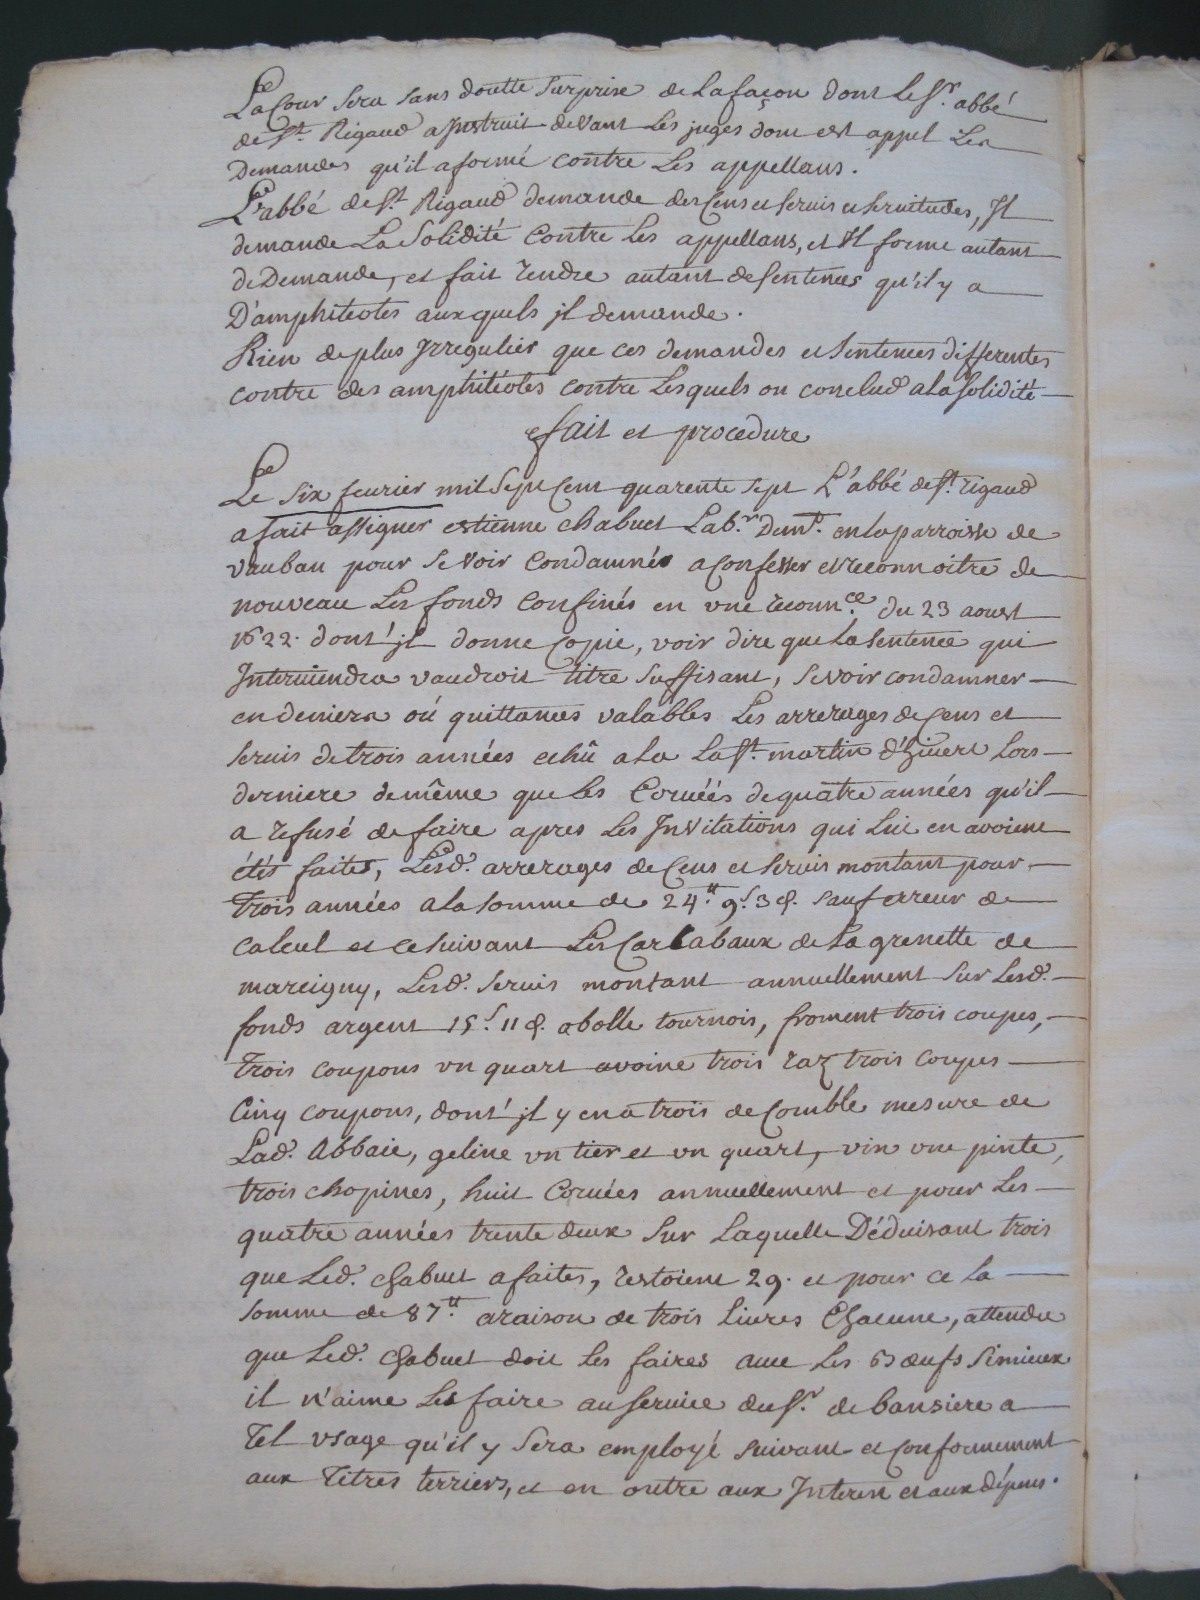 La Cour sera sans doutte surprise de la façon dont le Sr. abbé
de St. Rigaud a Instruit devant Les juges dont est appel Les
Demandes qu'il a formé contre Les appellans.
L'abbé de St. Rigaud demande des Cens et servis et servitudes, Il
demande La Solidité Contre Les appellans, et Il forme autant
de Demande, et fait rendre autant de sentences qu'il y a
D'amphiteotes aux quels jl demande.
Rien de plus Irregulier que ces demandes et sentences differentes
contre des amphitéotes contre Lesquels on conclud a la solidité
fait et procedure
Le six feurier mil sept Cent quarente sept L'abbé de St. rigaud
a fait assigner estienne chabuet Labr. Demt. en la parroisse de
vauban pour se voir Condamnés a Confesser et reconnoitre de
nouveau Les fonds Confinés en vne reconnce. du 23 aoust
1622. dont jl donne Copie, voir dire que La sentence qui
Interviendra vaudroit titre suffisant, se voir condamner
en deniers où quittances valables Les arrerages de Cens et
servis de trois années echû a la La St. martin d'hivert Lors
derniere de même que Les Corvéés de quatre années qu'il
a refusé de faire apres Les Invitations qui lui en avoient
étés faites, Lesd. arrerages de Cens et servis montant pour
trois années a la somme de 24tt. 9s. 3d. sauf erreur de
calcul et ce suivant Les Carcabaux de la grenette de
marcigny, Lesd. servis montant annuellement sur Lesd.
fonds argent 15s. 11d. obolle tournois, froment trois coupes,
trois coupons vn quart avoine trois raz trois coupes
Cinq coupons, dont jl y en a trois de Comble mesure de
Lad. Abbaie, geline vn tier et vn quart, vin vne pinte,
trois chopines, huit Corvées annuellement et pour Les
quatre années trente deux sur Laquelle Déduisant trois
que Led. chabuet a faites, restoient 29. et pour ce la
somme de 87tt. a raison de trois Liures Chacune, attendu
que Led. chabuet doit Les faires avec Les Bœufs si mieux
il n'aime Les faire au service du Sr. de bansiere a
Tel vsage qu'il y sera employé suivant et Conformement
aux Titres terriers, et en outre aux Interest et aux dépens.